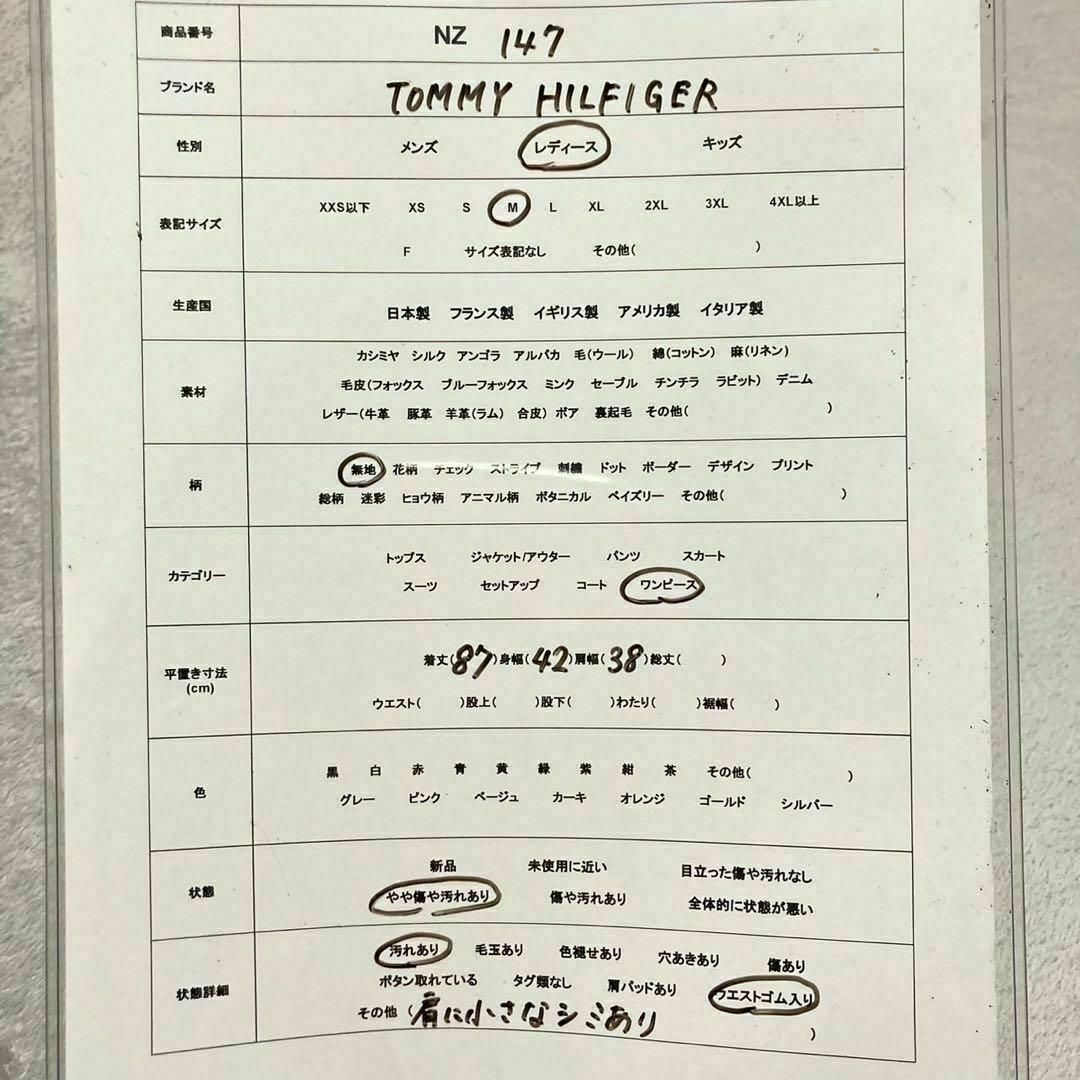 商品番号 NZ 147
ブランド名 TOMMY HILFIGER
性別 メンズ レディース キッズ
XXS以下 XS S M L XL 2XL 3XL 4XL以上
表記サイズ
F サイズ表記なし その他( )
生産国 日本製 フランス製 イギリス製 アメリカ製 イタリア製
カシミヤ シルク アンゴラ アルパカ 毛(ウール) 綿(コットン) 麻(リネン)
素材 毛皮(フォックス ブルーフォックス ミンク セーブル チンチラ ラビット) デニム
レザー(牛革 豚革 羊革(ラム) 合皮) ボア 裏起毛 その他( )
柄 無地 花柄 チェック ストライプ 刺繍 ドット ボーダー デザイン プリント
総柄 迷彩 ヒョウ柄 アニマル柄 ボタニカル ペイズリー その他( )
トップス ジャケット/アウター パンツ スカート
カテゴリー
スーツ セットアップ コート ワンピース
平置き寸法 着丈(87)身幅(42)肩幅(38)総丈( )
(cm) ウエスト( )股上( )股下( )わたり( )裾幅( )
黒 白 赤 青 黄 緑 紫 紺 茶 その他( )
色
グレー ピンク ベージュ カーキ オレンジ ゴールド シルバー
新品 未使用に近い 目立った傷や汚れなし
状態
やや傷や汚れあり 傷や汚れあり 全体的に状態が悪い
汚れあり 毛玉あり 色褪せあり 穴あきあり 傷あり
状態詳細 ボタン取れている タグ類なし 肩パッドあり ウエストゴム入り
その他 (肩に小さなシミあり )